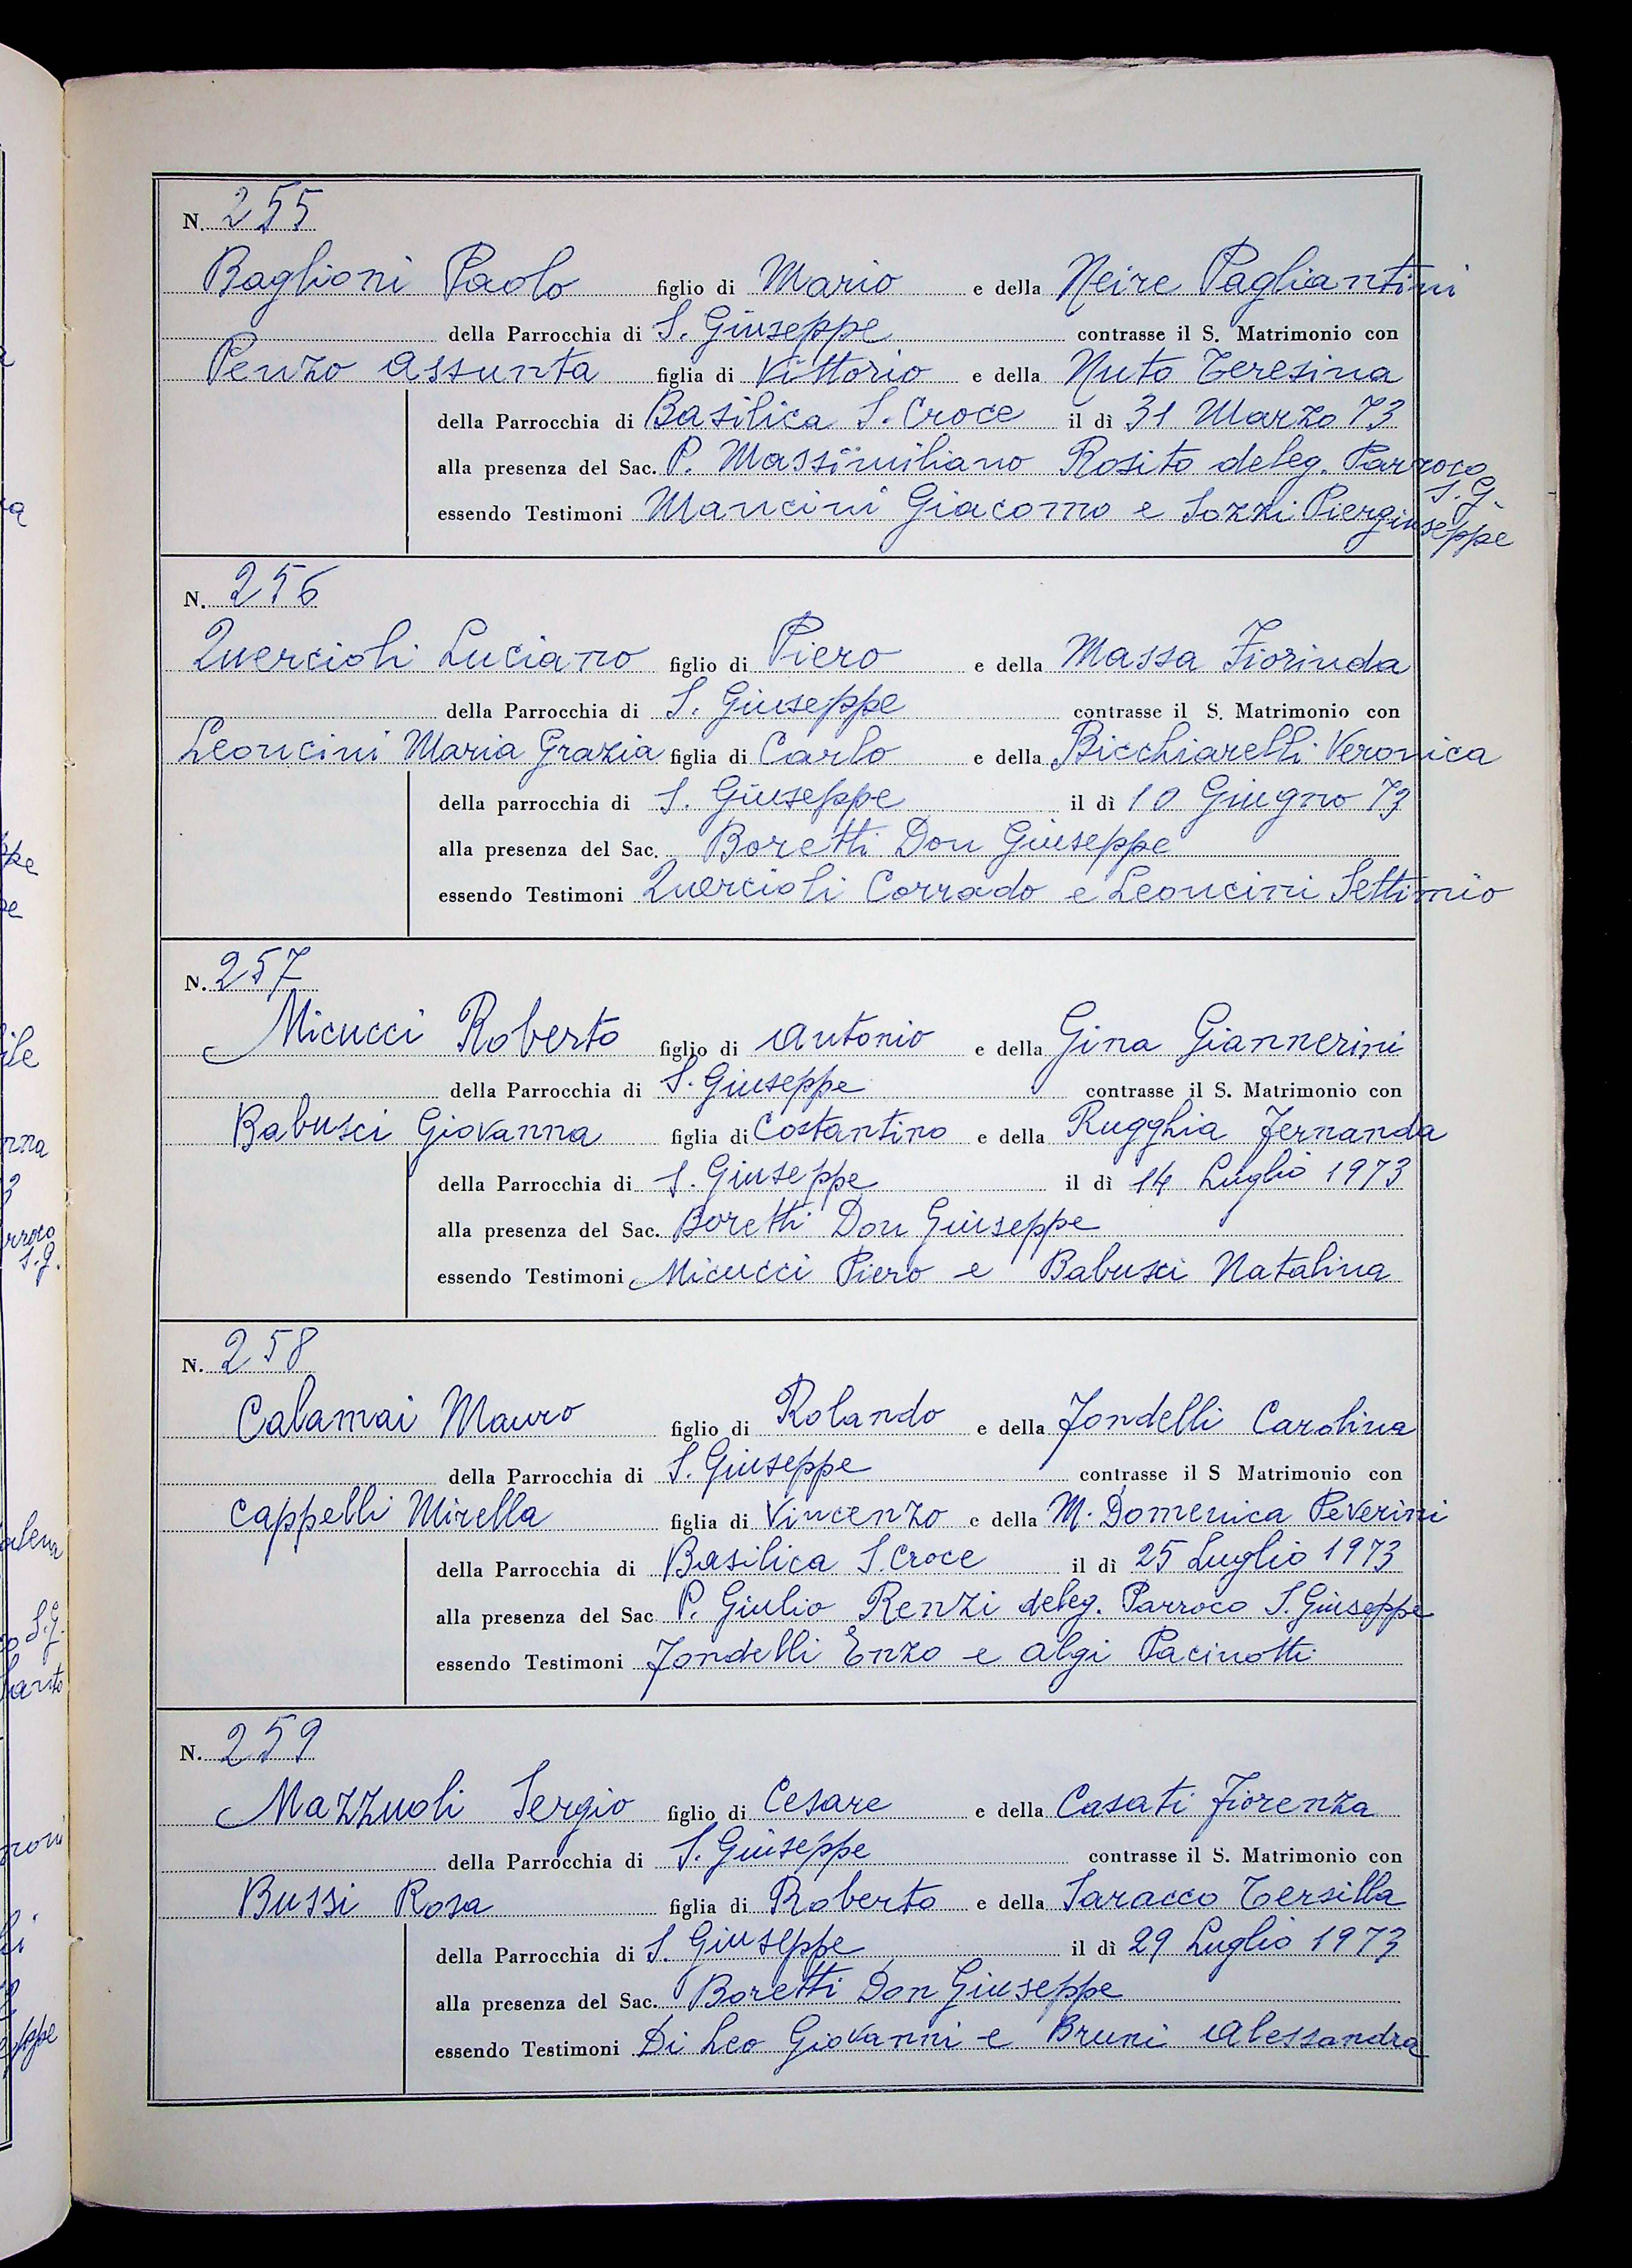 N. 255
Baglioni Paolo figlio di Mario e della Neire Pagliantini
della Parrocchia di S. Giuseppe contrasse il S. Matrimonio con
Penzo Assunta figlia di Vittorio e della Nuto Teresina
della Parrocchia di Basilica S. Croce il dì 31 Marzo 73
alla presenza del Sac. P. Massimiliano Rosito deleg. Parroco S. G.
essendo Testimoni Mancini Giacomo e Sozzi Piergiuseppe
N. 256
Quercioli Luciano figlio di Piero e della Massa Fiorinda
della Parrocchia di S. Giuseppe contrasse il S. Matrimonio con
Leoncini Maria Grazia figlia di Carlo e della Bicchiarelli Veronica
della parrocchia di S. Giuseppe il dì 10 Giugno 73
alla presenza del Sac. Boretti Don Giuseppe
essendo Testimoni Quercioli Corrado e Leoncini Settimio
N. 257
Micucci Roberto figlio di Antonio e della Gina Giannerini
della Parrocchia di S. Giuseppe contrasse il S. Matrimonio con
Babusci Giovanna figlia di Costantino e della Rugghia Fernanda
della Parrocchia di S. Giuseppe il dì 14 Luglio 1973
alla presenza del Sac. Boretti Don Giuseppe
essendo Testimoni Micucci Piero e Babusci Natalina
N. 258
Calamai Mauro figlio di Rolando e della Fondelli Carolina
della Parrocchia di S. Giuseppe contrasse il S Matrimonio con
Cappelli Mirella figlia di Vincenzo e della M. Domenica Peverini
della Parrocchia di Basilica S. Croce il dì 25 Luglio 1973
alla presenza del Sac P. Giulio Renzi deleg. Parroco S. Giuseppe
essendo Testimoni Fondelli Enzo e Algi Pacinotti
N. 259
Mazzuoli Sergio figlio di Cesare e della Casati Fiorenza
della Parrocchia di S. Giuseppe contrasse il S. Matrimonio con
Bussi Rosa figlia di Roberto e della Saracco Tersilla
della Parrocchia di S. Giuseppe il dì 29 Luglio 1973
alla presenza del Sac. Boretti Don Giuseppe
essendo Testimoni Di Leo Giovanni e Bruni Alessandra